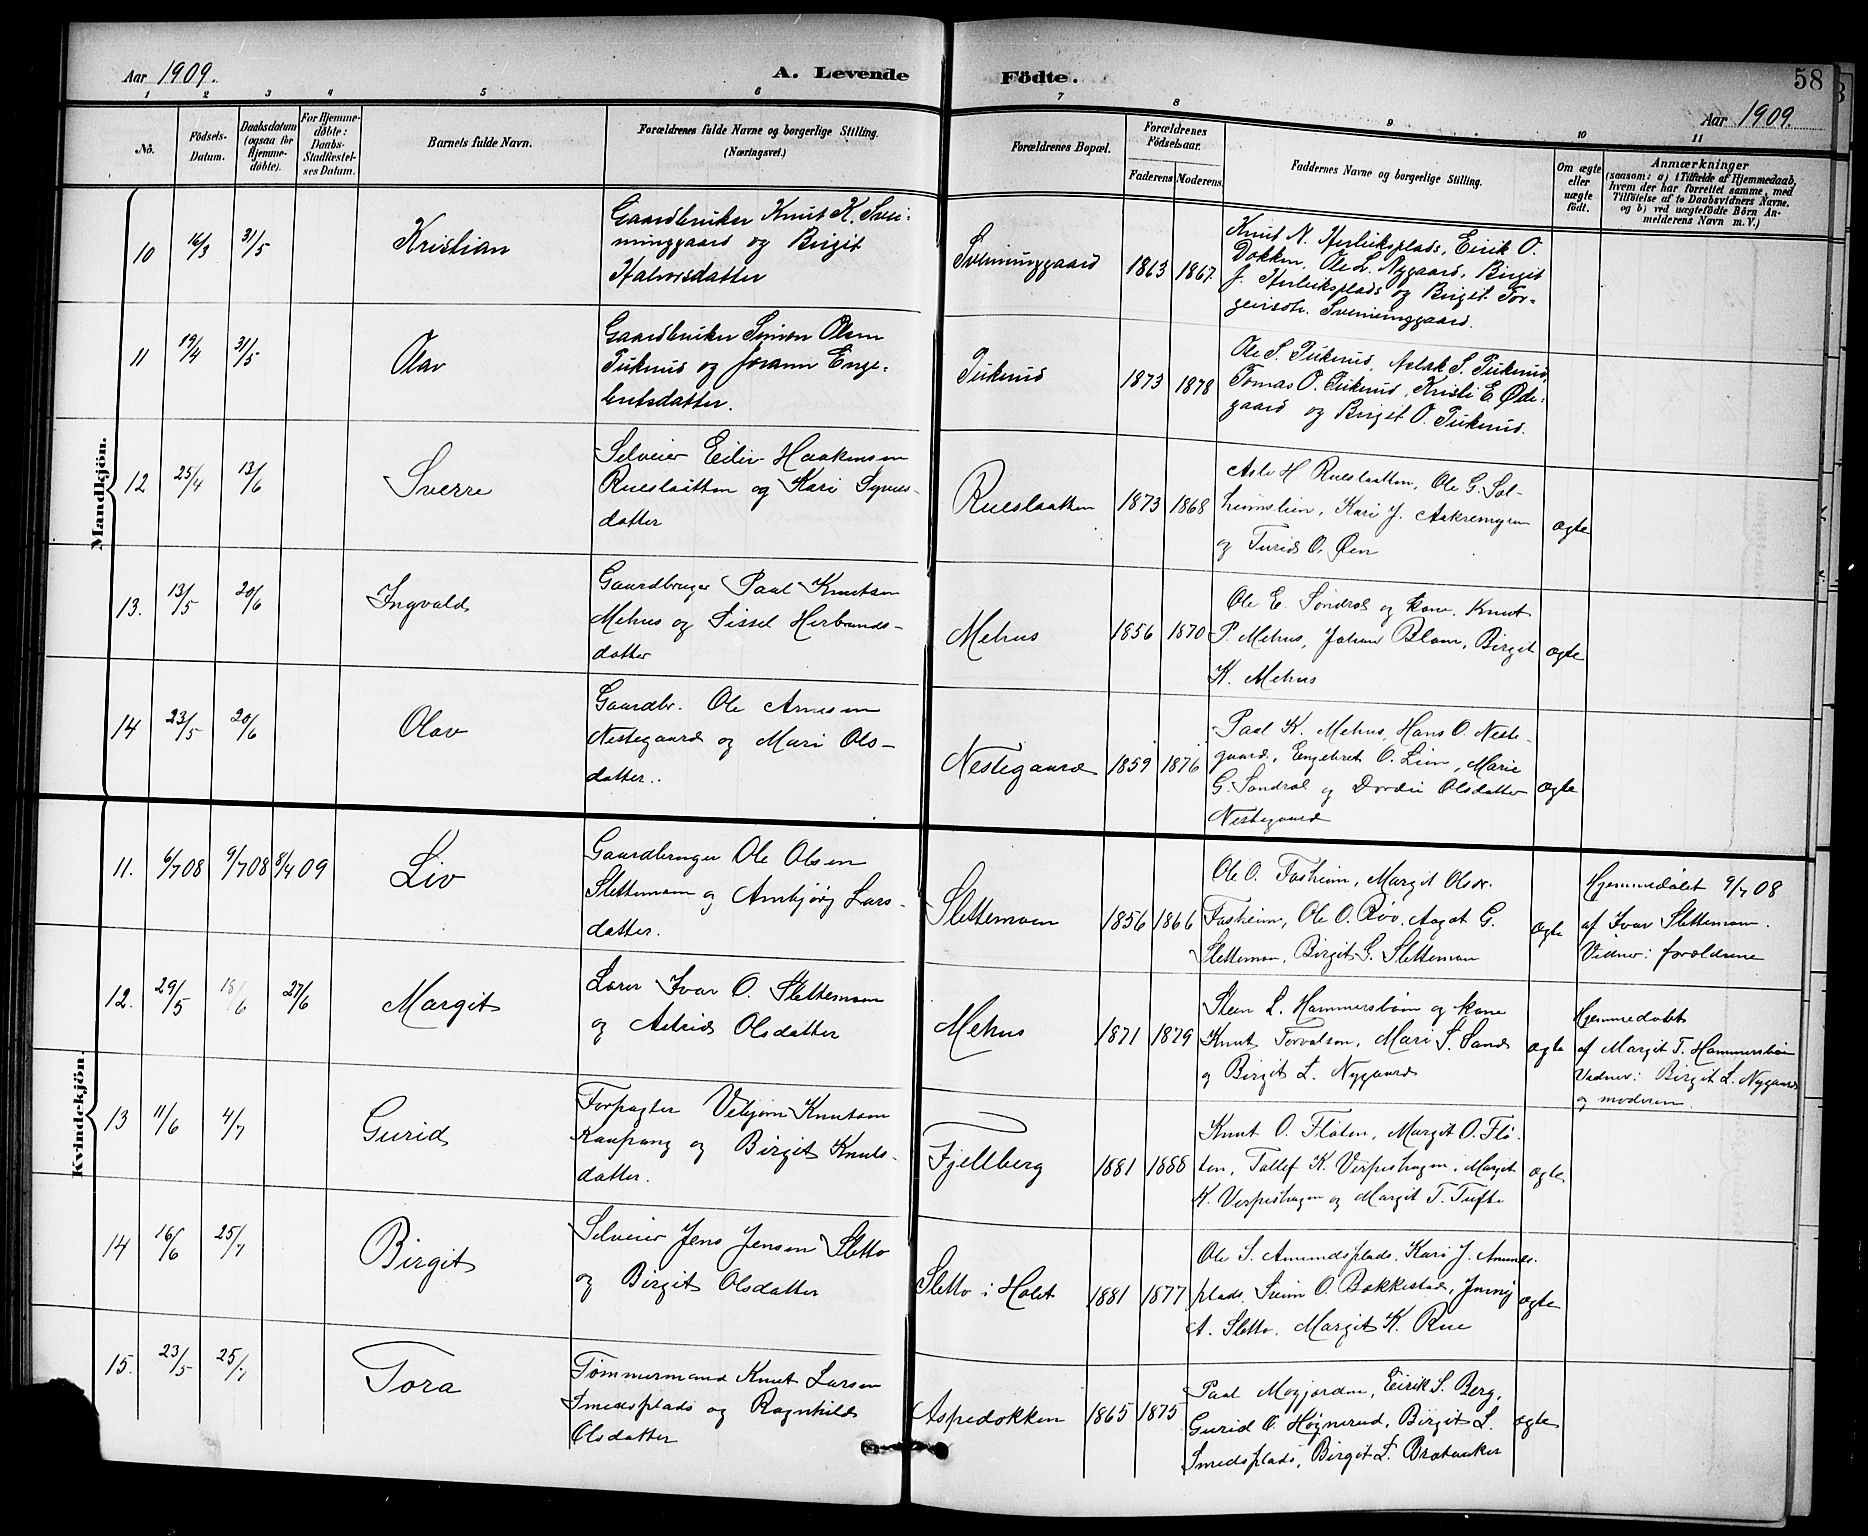 Aar 1909.
A. Levende Födte.
58
Aar 1909.
1 2 3 4 5 6 7 8 9 10 11
No.
Födsels-
Datum.
Daabsdatum
(ogsaa for
Hjemme-
döbte).
For Hjemme-
döbte:
Daabs-
Stadfæstel-
ses Datum.
Barnets fulde Navn.
Forældrenes fulde Navne og borgerlige Stilling.
(Næringsvei.)
Forældrenes Bopæl.
Forældrenes
Födselsaar.
Faderens Moderens.
Faddernes Navne og borgerlige Stilling.
Om ægte
eller
uægte
født.
Anmærkninger
(saasom: a) i Tilfælde af Hjemmedaab,
hvem der har forrettet samme, med
Tilföielse af to Daabsvidners Navne.
og b) ved uægtefödte Börn An-
melderens Navn m. V.)
Mandkjön.
10 16/3 31/5 Kristian
Gaardbruker Knut K. Sven-
ninggaard og Birgit
Halvorsdatter
Svenninggaard 1863 1867
Knut N. Herleiksplads, Eirik O.
Dokken, Ole L. Nygaard, Birgit
J. Herleiksplads og Birgit Tor-
geirsdtr. Svenninggaard.
11 19/4 31/5 Olav
Gaardbruker Simen Olsen
Tukerud og Jorann Enge-
bretsdatter.
Tukerud 1873 1878
Ole S. Tukerud, Aslak S. Tukerud,
Tomas O. Tukerud, Kristi E. Øde-
gaard og Birgit O. Tukerud.
12 25/4 13/6 Sverre
Selveier Eiliv Haakensen
Rueslaatten og Kari Synves-
datter
Rueslaatten 1873 1868
Asle H Rueslaatten, Ole G. Sol-
heimslien, Kari J. Aakremyren
og Turid O. Øen
ægte
13. 13/5 20/6 Ingvald
Gaardbruger Paal Knutsen
Mehus og Sissel Herbrands-
datter
Mehus 1856 1870
Ole E. Søndrol og kone, Knut
P. Mehus, Johan Blom, Birgit
K. Mehus
ægte
14 23/5 20/6 Olav
Gaardbr. Ole Arnesen
Nestegaard og Mari Ols-
datter..
Nestegaard 1859 1876
Paal K. Mehus, Hans O. Neste-
gaard, Engebret O. Lien, Marie
G. Sondrol og Dordie Olsdatter
Nestegaard
ægte
Kvindekjön.
11. 6/7 08 9/7 08 8/4 09 Liv
Gaardbruger Ole Olsen
Slettemoen og Ambjørg Lars-
datter.
Slettemoen 1856 1866
Ole O. Tosheim, Margit Olsdr.
Tosheim, Ole O. Røv, Aagot G.
Slettemoen, Birgit G. Slettemoen
ægte
Hjemmedøbt 9/7 08
af Ivar Slettemoen.
Vidner: forældrene
12. 29/5 18/6 27/6 Margit
Lærer Ivar O. Slettemoen
og Astrid Olsdatter
Mehus 1871 1879
Steen L. Hammersbøen og kone
Knut Torvalson, Mari S. Sand
og Birgit L. Nygaard
ægte
Hjemmedøbt
af Margit T. Hammersbøen
Vidner: Birgit L. Nygaard
og moderen.
13 11/6 4/7 Gurid
Forpagter Vebjørn Knutsen
Kaupang og Birgit Knuts-
datter.
Fjellberg 1881 1888
Knut O. Fløten, Margit O. Flø-
ten, Tollef K. Verpeshagen, Margit
K. Verpeshagen og Margit T. Tufte
ægte
14 16/6 25/7 Birgit
Selveier Jens Jensen Sletto
og Birgit Olsdatter
Sletto i Holet 1881 1877
Ole S. Amundsplads, Kari J. Amunds-
plads, Svein O. Bakkestad,
A. Sletto, Margit K. Rue
ægte
15. 23/5 25/7 Tora
Tømmermand Knut Larsen
Smedsplads og Ragnhild
Olsdatter
Aspedokken 1865 1875
Paal Mogjorden, Eirik S. Berg,
Gurid O Høgnerud, Birgit L.
Smedsplads, Birgit L. Brataaker
ægte